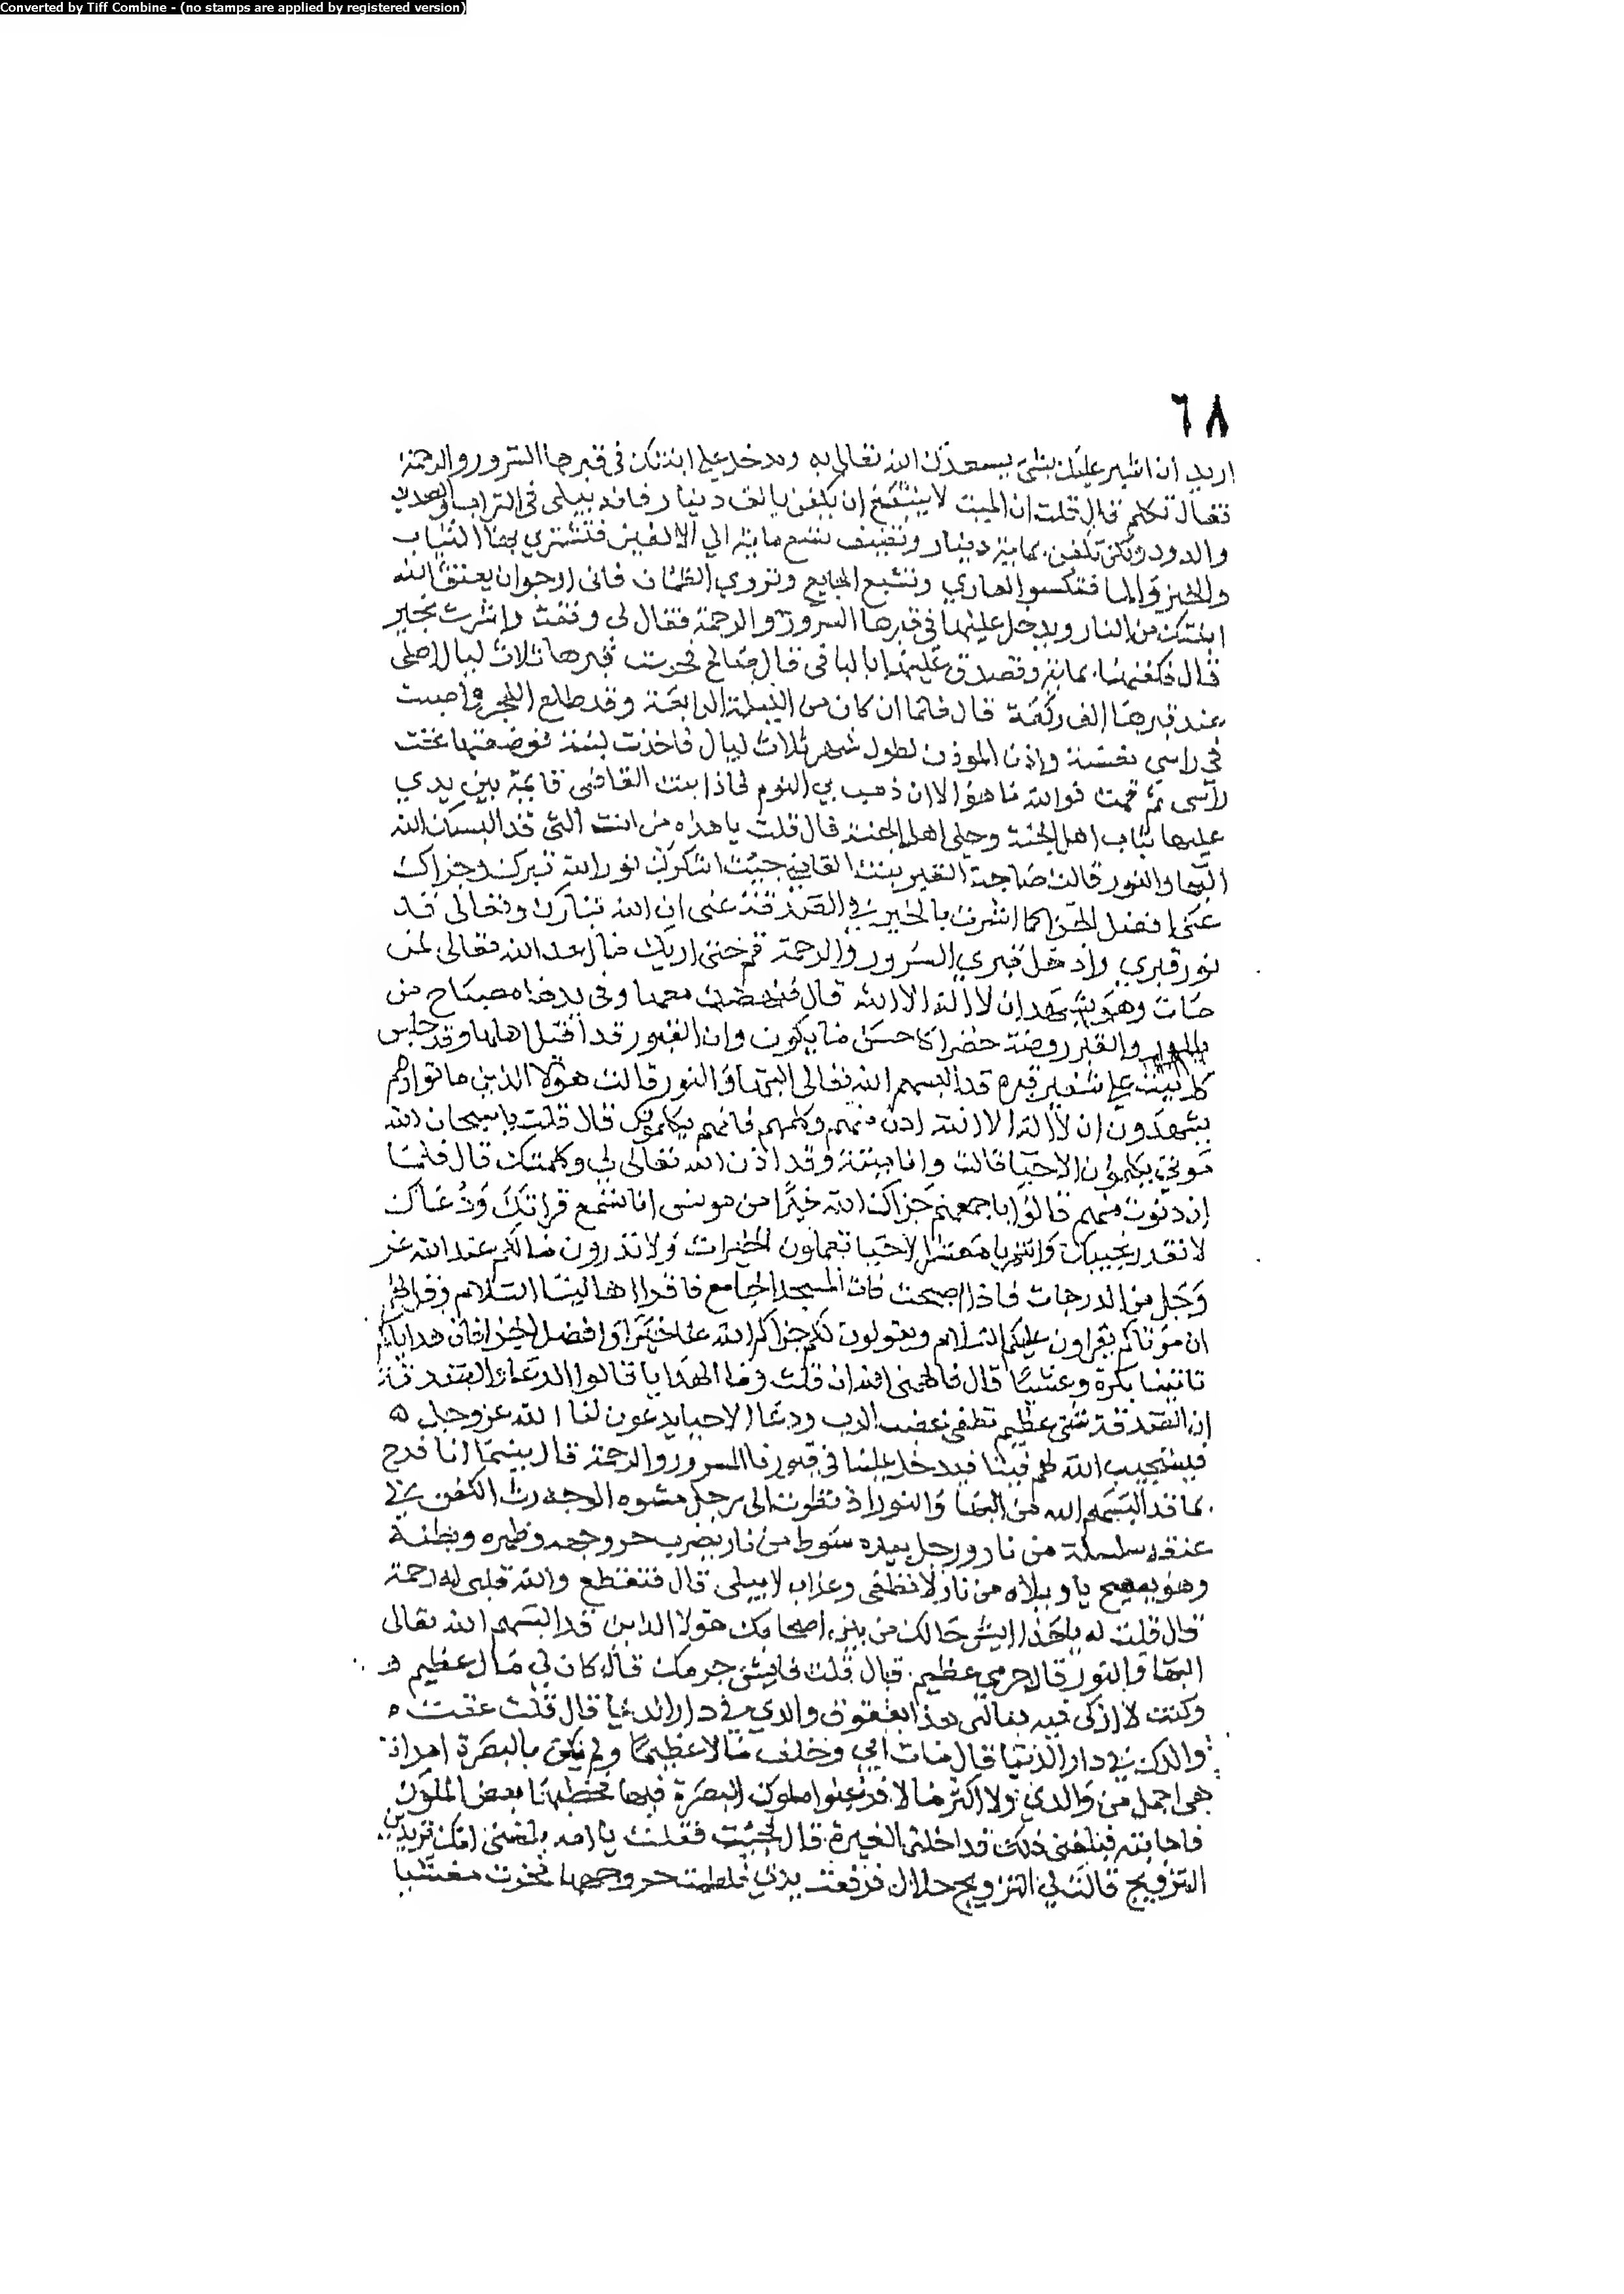 Converted by Tiff Combine - (no stamps are applied by registered version)
٦٨
اريد ان اشير عليك بشئ يسعدك الله تعالى به ويدخل على ابنتك في قبرها السرور والرحمة
فقال تكلم قال قلت ان الميت لا ينتفع ان يكفن بالف دينار فانه يبلى في التراب والصديد
والدود ولكن تكفن بماية دينار وتضيف تسع ماية الي الالفين فتشتري بهذا الثياب
والخبز والما فتكسوا العاري وتشبع الجايع وتروي الظمان فاني ارجو ان يعتق الله
ابنتك من النار ويدخل عليها في قبرها السرور والرحمة فقال لي وفقت واشرت بخير
قال فكفنها بماية وتصدق عليها بالباقي قال صالح فحرت قبرها ثلاث ليال اصلى
عند قبرها الف ركعة قال فلما ان كان من الليلة الرابعة وقد طلع الفجر واصبت
في راسي نعسة واذن الموذن لطول سهر ثلاث ليال فاخذت لبنة فوضعتها تحت
راسى ثم نمت فوالله ما هو الا ان ذهب بي النوم فاذا ببنت القاضى قايمة بين يدي
عليها ثياب اهل الجنة وحلى اهل الجنة قال قلت يا هذه من انت التي قد البسك الله
البها والنور قالت صاحبة القبر بنت القاضي جيت اشكرك نور الله قبرك وجزاك
عني افضل الجزا كما اشرت بالخير في الصدقة عنى ان الله تبارك وتعالى قد
نور قبري وادخل قبري السرور والرحمة قم حتى اريك ما اعد الله تعالى لمن
مات وهو يشهد ان لا اله الا الله قال فنهضت معها وفي يدها مصباح من
والقبر روضة خضرا كاحسن ما يكون وان القبور قد اقبل اهلها وقد جلس
كل ميت على شفير قبره قد البسهم الله تعالى البها والنور قالت هؤلا الذين ماتوا وهم
يشهدون ان لا اله الا الله ادن منهم وكلمهم فانهم يكلمونك قال قلت يا سبحان الله
موتي يكلمون الاحيا قالت وانا ميتة وقد اذن الله تعالى لي وكلمتك قال فلما
ان دنوت منهم قالوا باجمعهم جزاك الله خيرا من مونس انا نسمع قراتك ودعاك
لا نقدر نجيبك وانتم يا معشر الاحيا تعملون الخيرات ولا تدرون ما لكم عند الله عز
وجل من الدرجات فاذا اصبحت فات المسجد الجامع فاقرا اهالينا السلام وقل لهم
ان موتاكم يقراون عليكم السلام ويقولون لكم جزاكم الله عنا خيرا وافضل الجزا فان هداياكم
تاتينا بكرة وعشيا قال فالهمني الله ان قلت وما الهدايا قالوا الدعا والصدقة
ان الصدقة شى عظيم تطفى غضب الرب ودعا الاحيا يدعون لنا الله عز وجل ه
فيستجيب الله لهم فينا فيدخل علينا في قبورنا السرور والرحمة قال بينما انا فرح
بما قد البسهم الله من البها والنور اذ نظرت الى رجل مشوه الوجه رث الكفن في
عنقه سلسلة من نار ورجل بيده سوط من نار يضرب حر وجهه وظهره وبطنه
وهو يصيح يا ويلاه من نار لا تطفى وعذاب لا يبلى قال فتقطع والله قلبي له رحمة
قال قلت له يا هذا ايش حالك من بين اصحابك هؤلا الذين قد البسهم الله تعالى
البها والنور قال جرمي عظيم قال قلت فايش جرمك قال كان لي مال عظيم
وكنت لا ازكى فيه والدي في دار الدنيا قال قلت عققت ه
والدك في دار الدنيا قال مات ابي وخلف مالا عظيما ولم يكن بالبصرة امراة
هى اجمل من والدي ولا اكثر مالا فرغبوا ملوك البصرة فيها فخطبها بعض الملوك
فاجابته فبلغنى ذلك قد اخلتنى الغيرة قال فجيت فقلت يا امه بلغني انك تريدين
التزويج قالت لي التزويج حلال فرفعت يدي فلطمت حر وجهها فخرت مغشيا